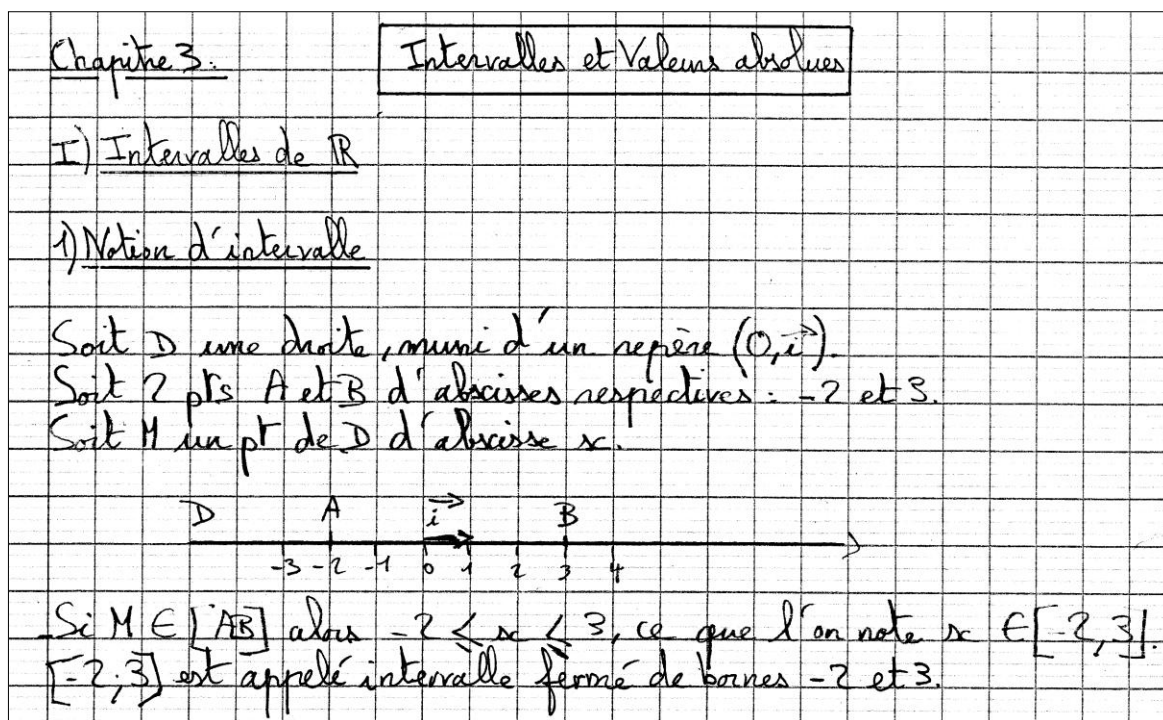 Chapitre 3: Intervalles et Valeurs absolues
I) Intervalles de ℝ
1) Notion d'intervalle
Soit D une droite, muni d'un repère (O, i⃗).
Soit 2 pts A et B d'abscisses respectives : -2 et 3.
Soit M un pt de D d'abscisse x.
D A i⃗ B
-3 -2 -1 0 1 2 3 4
Si M ∈ [AB] alors -2 ≤ x ≤ 3, ce que l'on note x ∈ [-2,3].
[-2;3] est appelé intervalle fermé de bornes -2 et 3.